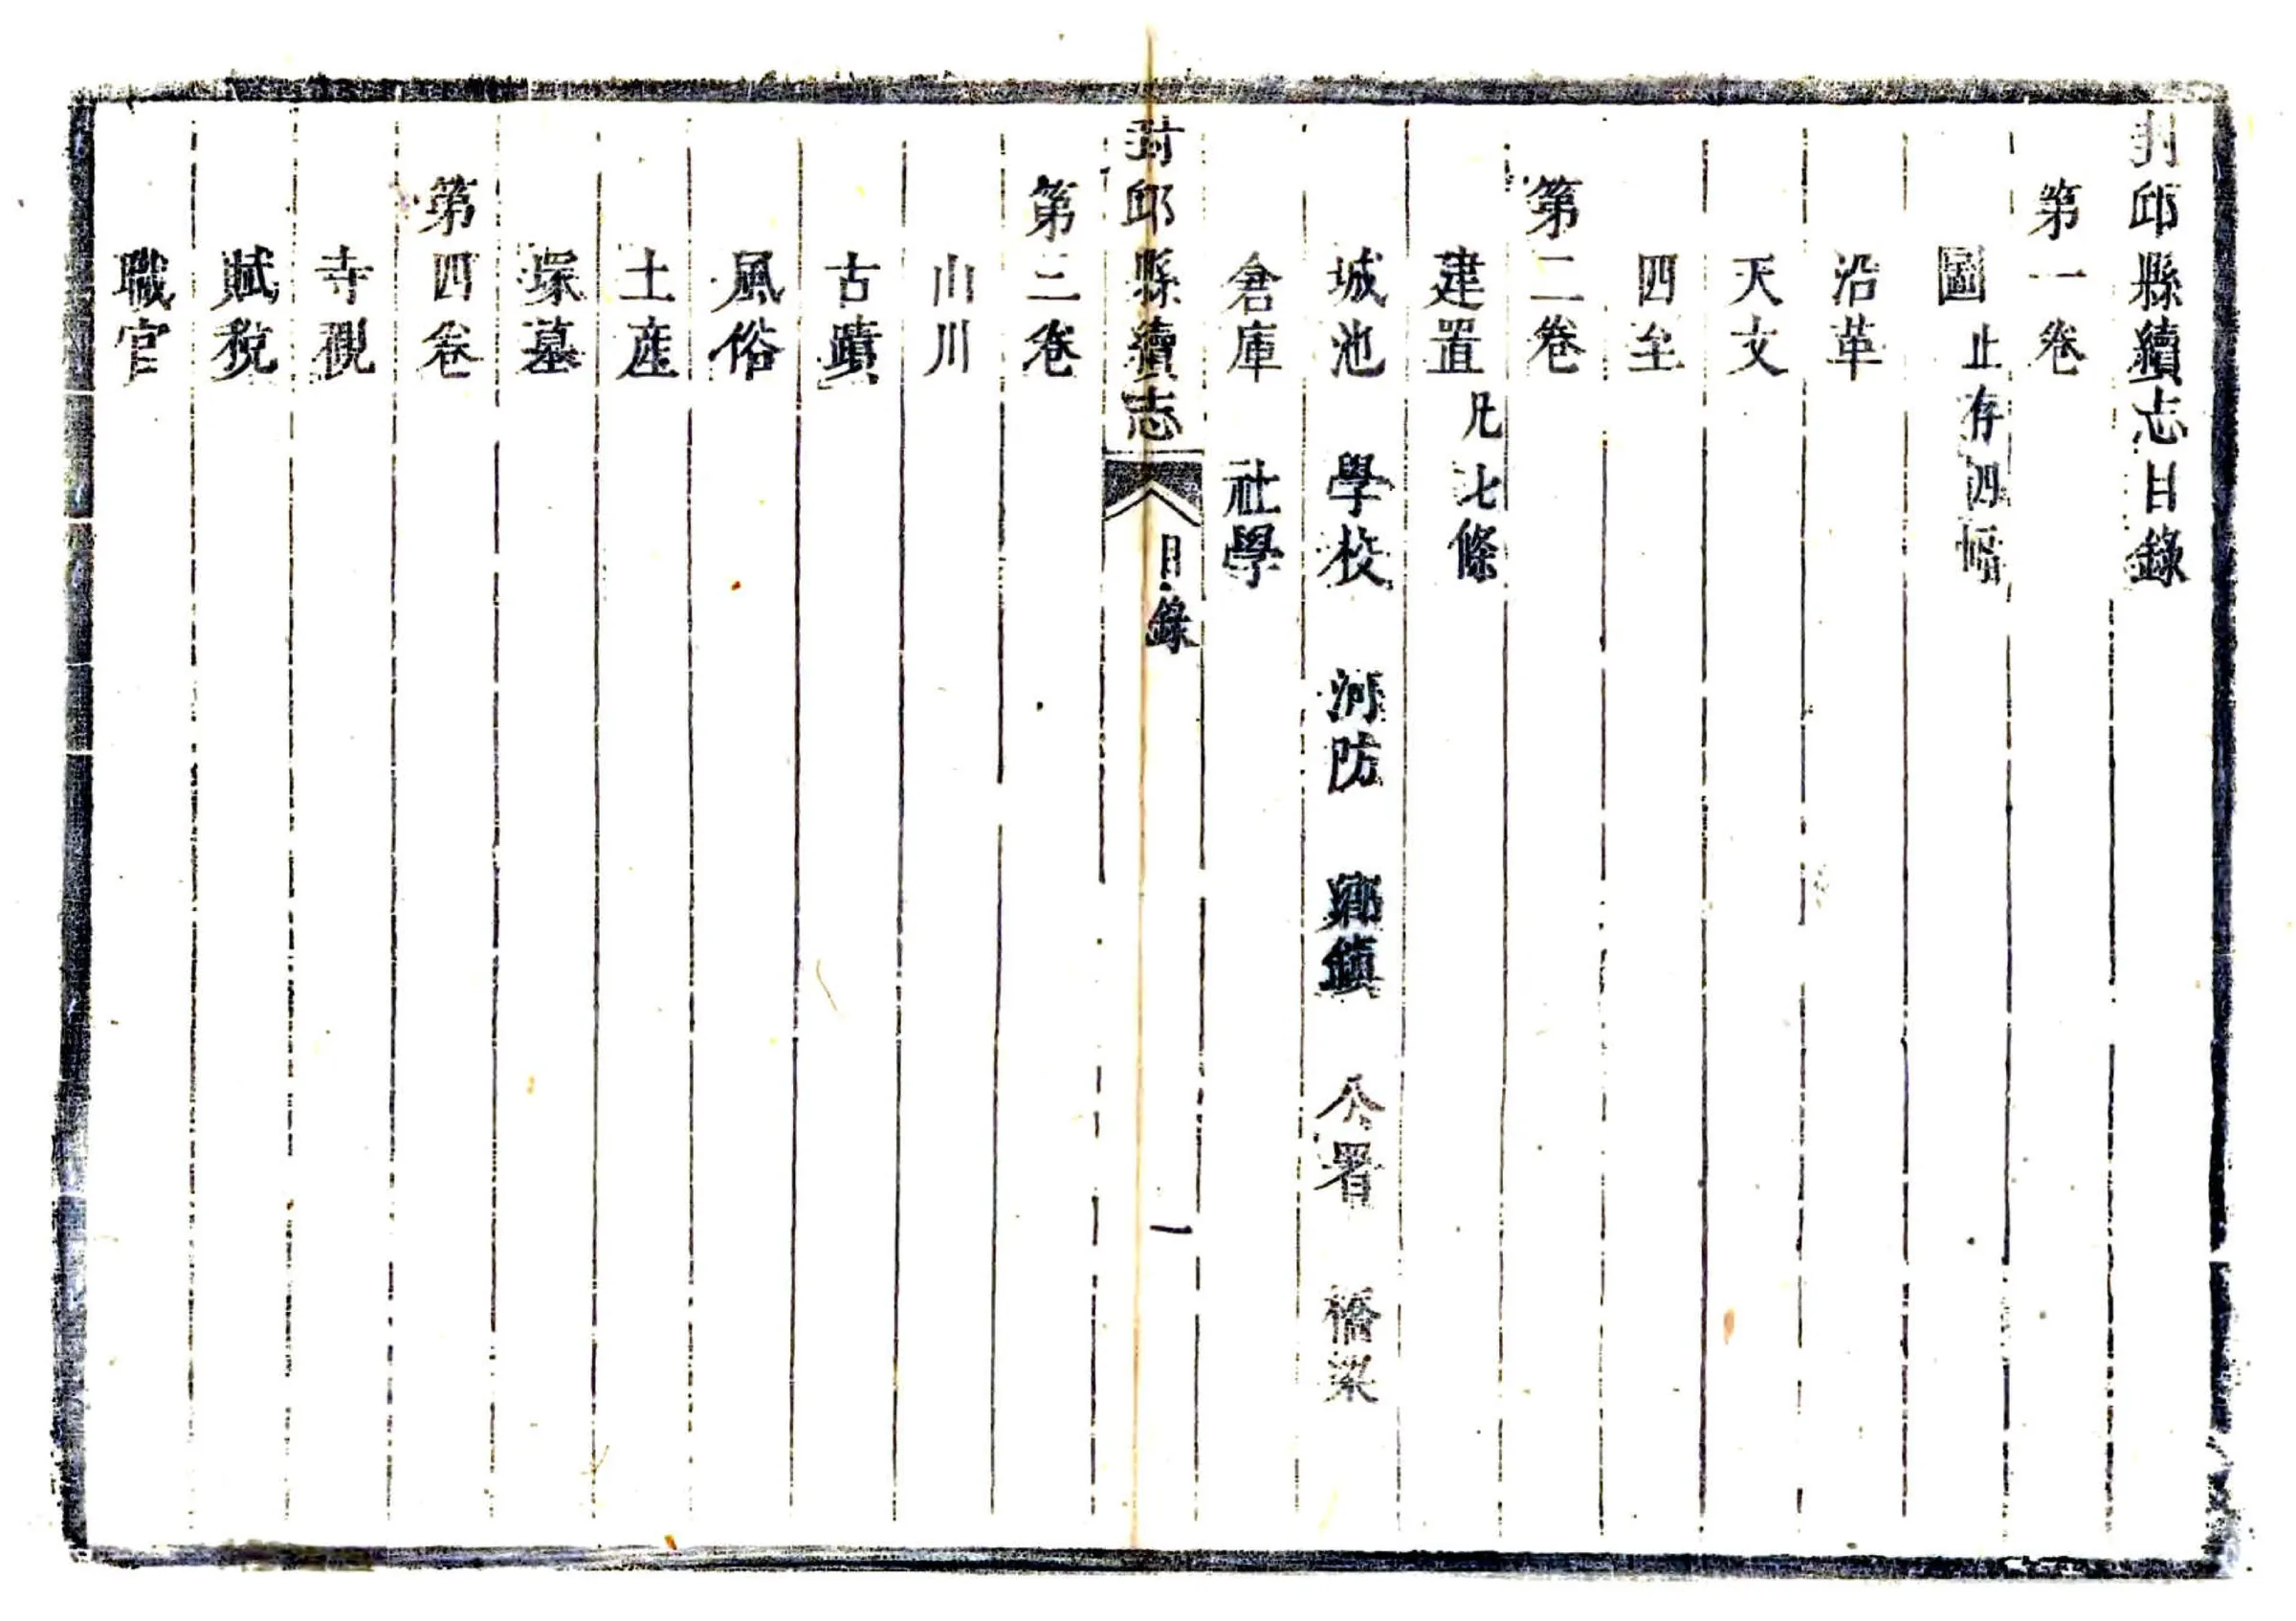 封邱縣續志目錄
第一卷
圖止存四幅
沿革
天文
四至
第二卷
建置凡七條
城池 學校 河防 鄉鎮 公署 橋梁
倉庫 社學
封邱縣續志 目錄 一
第三卷
山川
古蹟
風俗
土產
塚墓
寺觀
第四卷
賦稅
職官